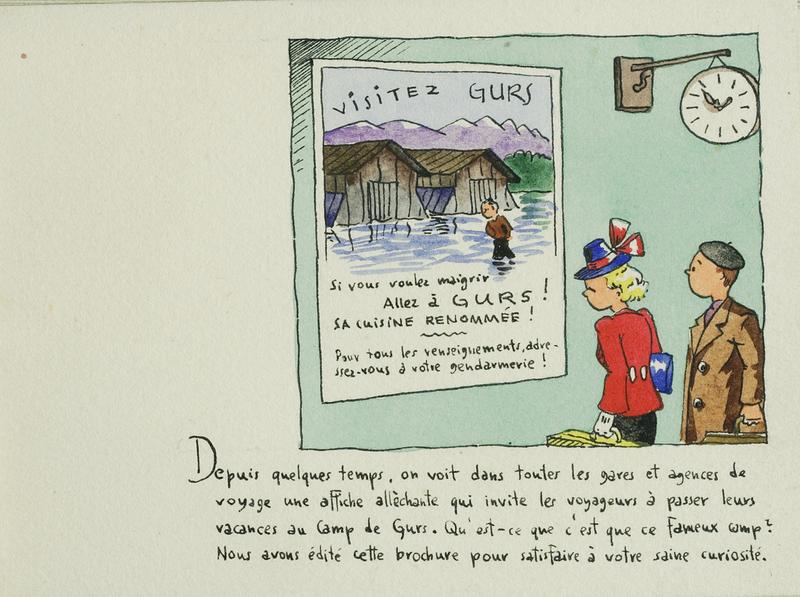 VISITEZ GURS
Si vous voulez maigrir
Allez à GURS !
SA CUISINE RENOMMÉE !
Pour tous les renseignements, adre-
ssez-vous à votre gendarmerie !
Depuis quelques temps, on voit dans toutes les gares et agences de
voyage une affiche allèchante qui invite les voyageurs à passer leurs
vacances au Camp de Gurs. Qu'est-ce que c'est que ce fameux camp?
Nous avons édité cette brochure pour satisfaire à votre saine curiosité.